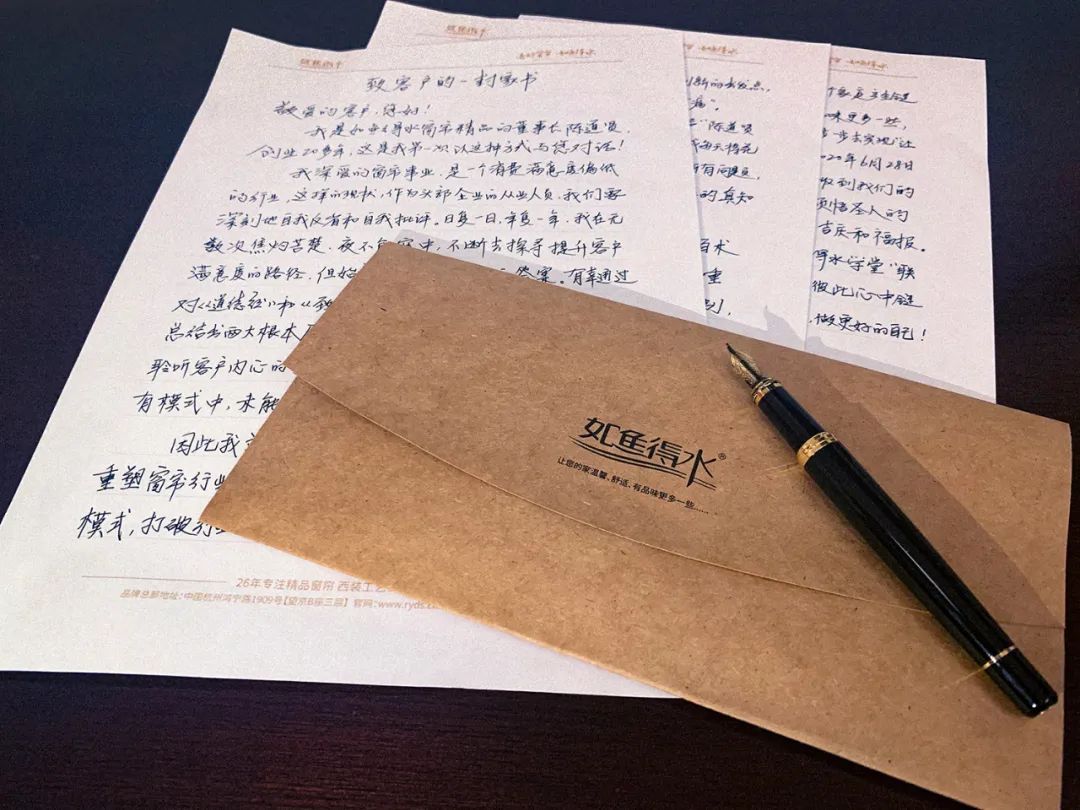 致客户的一封家书
敬爱的客户，您好！
我是如鱼得水窗帘精品的董事长陈道贤，
创业20多年，这是我第一次以这种方式与您对话！
我深爱的窗帘事业，是一个消费满意度偏低
的行业，这样的现状，作为头部企业的从业人员，我们要
深刻地自我反省和自我批评。日复一日，年复一年，我在无
数次焦灼苦楚、夜不能寐中，不断去探寻提升客户
满意度的路径，但始
答案。有幸通过
对《道德经》和《致
总结出两大根本
聆听客户内心的
有模式中，未能
因此我
重塑窗帘行业
模式，打破行业
26年专注精品窗帘 西装工艺
品牌总部地址：中国杭州鸿宁路1909号【望京B座三层】 官网：www.ryds.c
创新的出发点，
陈道贤
的真知
百术
重
味更多一些，
步去实现"让
2020年6月28日
收到我们的
圣人的
吉庆和福报。
得水学堂"联
彼此心中链
做更好的自己！
如鱼得水®
让您的家温馨、舒适、有品味更多一些……